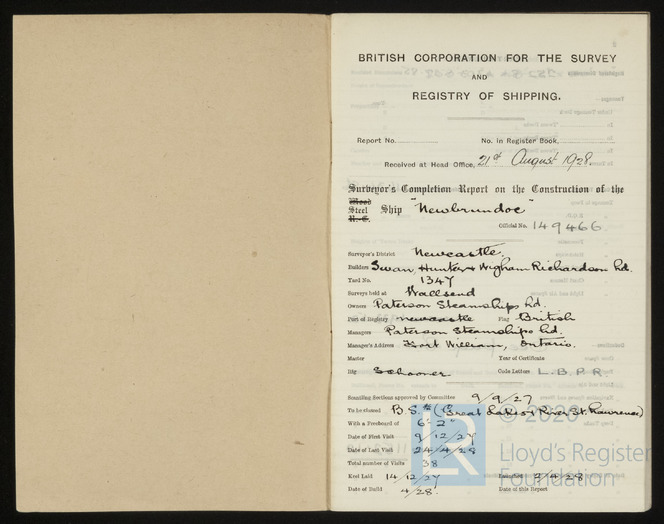 BRITISH CORPORATION FOR THE SURVEY
AND
REGISTRY OF SHIPPING.
Report No. No. in Register Book,
Received at Head Office, 21st August 1928.
Surveyor's Completion Report on the Construction of the
Wood
Steel Ship "Newbrundoc"
Official No. 149466
Surveyor's District Newcastle.
Builders Swan, Hunter & Wigham Richardson Ld.
Yard No. 1347
Surveys held at Wallsend
Owners Paterson Steamships Ld.
Port of Registry Newcastle Flag British
Managers Paterson Steamships Ld.
Manager's Address Fort William, Ontario.
Master Year of Certificate
Rig Schooner Code Letters L.B.P.R.
Scantling Sections approved by Committee 9/9/27
To be classed B.S.* (Great Lakes & River St. Lawrence)
With a Freeboard of 6' 2"
Date of First Visit 9/12/27
Date of Last Visit 24/4/28
Total number of Visits 38
Keel Laid 14/12/27 Launched 2/4/28
Date of Build 4/28. Date of this Report
LR
© 2020
Lloyd's Register
Foundation